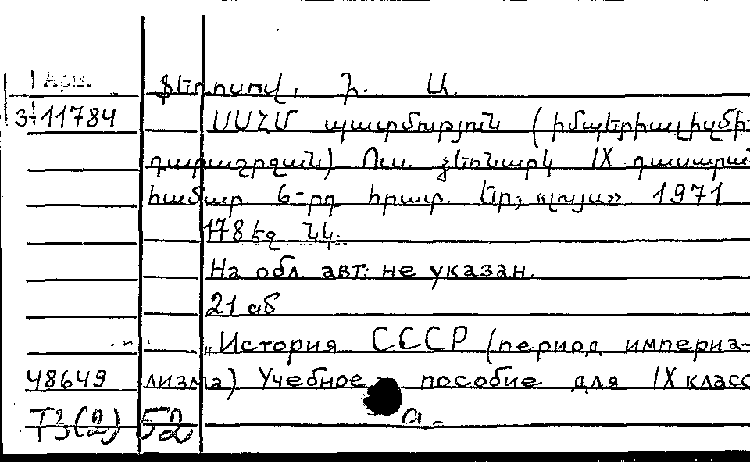 Арм. Ֆեդոսով, Ի. Ա.
3-11784 ՍՍՀՄ պատմություն (իմպերիալիզմի
դարաշրջան) Ուս. ձեռնարկ IX դասարան
համար 6-րդ հրատ. Եր., «Լույս» 1971
178 էջ նկ.
На обл. авт. не указан.
21 аб
"История СССР (период империа-
48649 лизма) Учебное пособие для IX класс
Т3(2) 52 а -